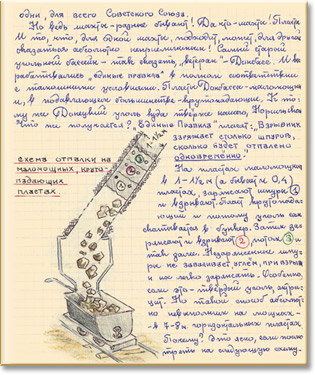 одни, для всего Советского Союза.
Но ведь шахты - разные бывают! Да что - шахты! Пласты
И то, что, для одной шахты, подходит, может, для другой
оказаться абсолютно неприемлемым! Самый старый
угольный бассейн - так сказать, "ветеран" - Донбасс. И
разбатывались "единые правила" в полном соответствии
с тамошними условиями. Пласты Донбасса - маломощны
и, в подавляющем большинстве - крутопадающие. К то-
му же Донецкий уголь куда мягче нашего, Норильского
Что же получается? "Единые Правила" гласят: Взрывник
заряжает столько шпуров,
сколько будет отпалено
одновременно.
1-1½ м
Схема отпалки на
маломощных, круто-
падающих
пластах
На пластах маломощных
в 1-1½ м (а бывает и 0,4)
пластах, заряжают шпуры 1
и взрывают. Пласт крутопадаю-
щий и потому уголь сам
скатывается в бункер. Затем за-
ряжают и взрывают 2, потом 3 и
так далее. Незаряженные шпу-
ры не заваливает углём, при взрыве
и их легко зарядить. Особенно,
если это - твёрдый уголь, антра-
цит. Но такой способ абсолют-
но неприемлем на мощных -
- в 7-8 м горизонтальных пластах
Почему? Это ясно, если посмо-
треть на следующую схему.